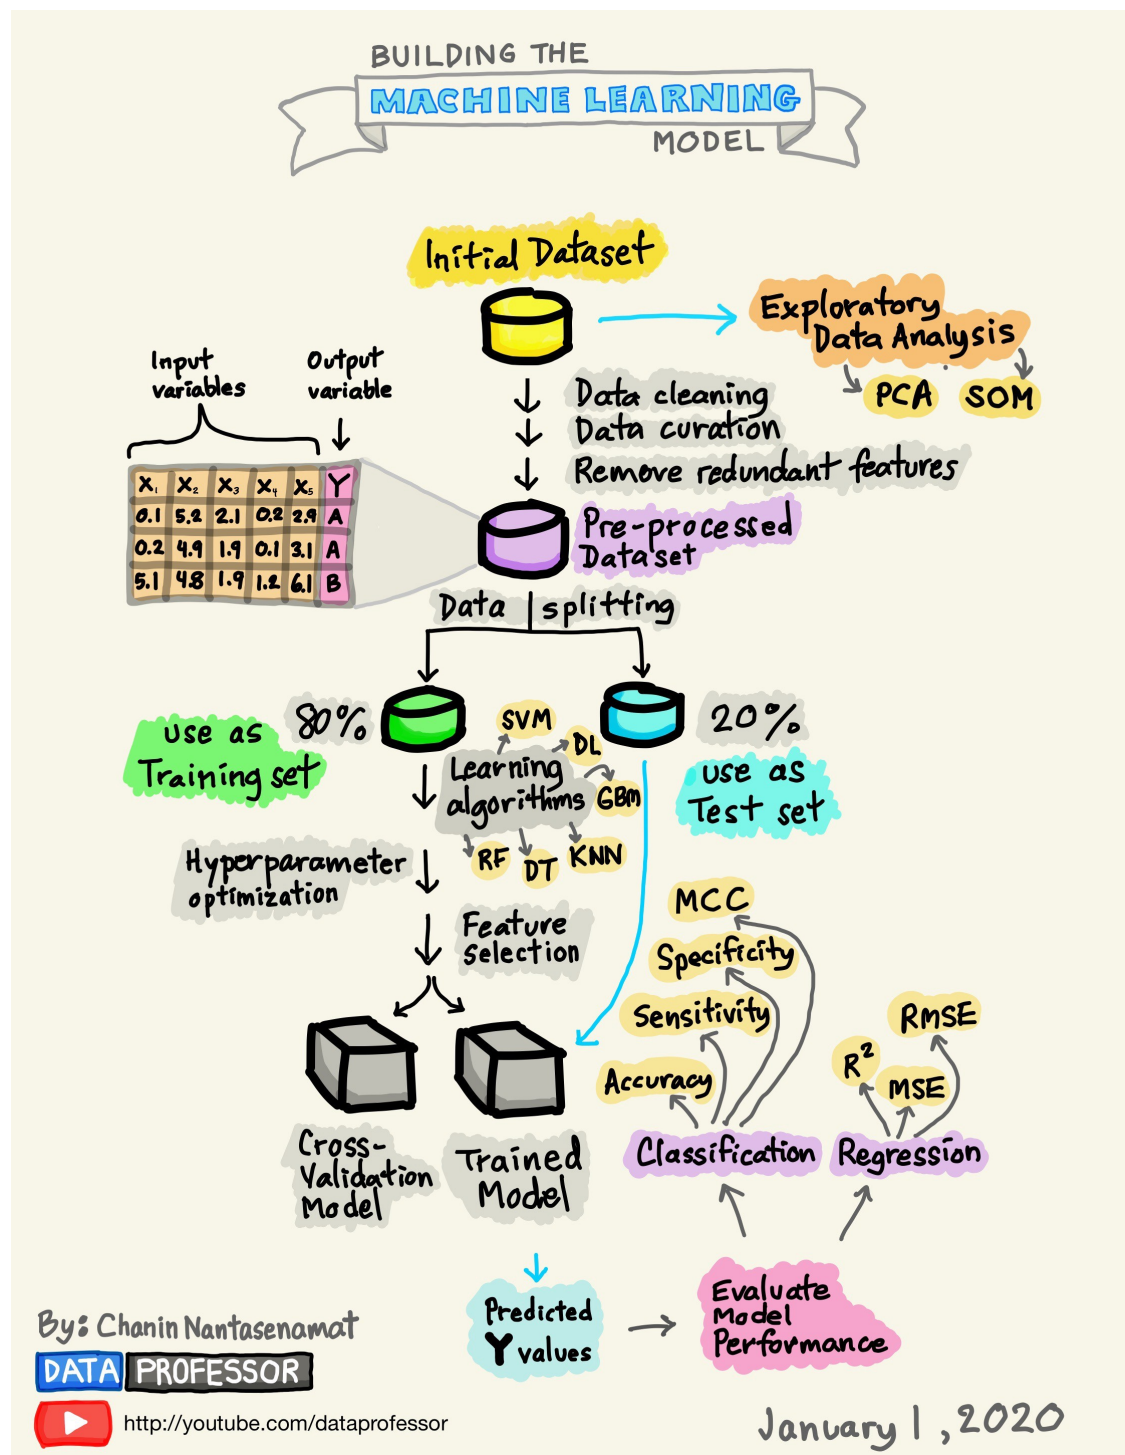 BUILDING THE
MACHINE LEARNING
MODEL
Initial Dataset
Exploratory
Data Analysis
PCA SOM
Data cleaning
Data curation
Remove redundant features
Input
variables
Output
variable
X₁ X₂ X₃ X₄ X₅ Y
0.1 5.2 2.1 0.2 2.9 A
0.2 4.9 1.9 0.1 3.1 A
5.1 4.8 1.9 1.2 6.1 B
Pre-processed
Dataset
Data splitting
80%
use as
Training set
20%
use as
Test set
Learning
algorithms
SVM
DL
GBM
KNN
DT
RF
Hyperparameter
optimization
Feature
selection
Cross-
Validation
Model
Trained
Model
MCC
Specificity
Sensitivity
Accuracy
Classification
RMSE
R²
MSE
Regression
Predicted
Y values
Evaluate
Model
Performance
By: Chanin Nantasenamat
DATA PROFESSOR
http://youtube.com/dataprofessor
January 1, 2020